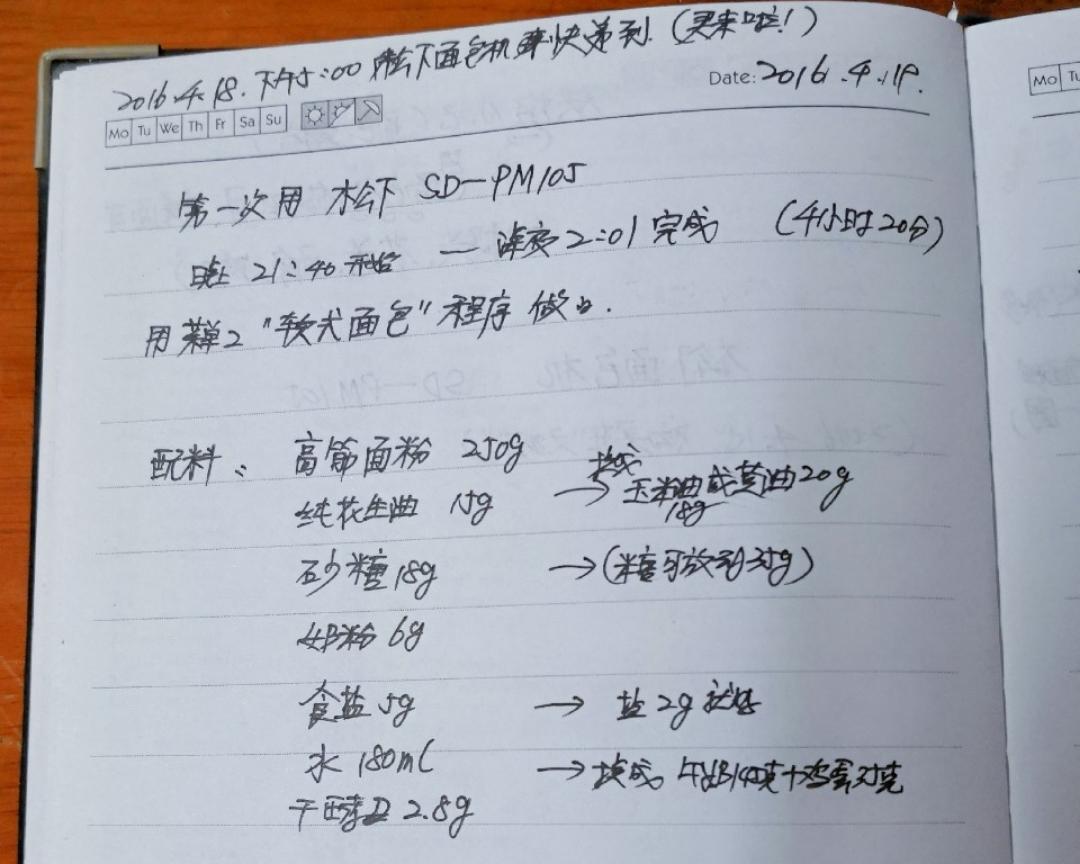 2016.4.18.下午5:00 松下面包机 快递到.(买来啦!)
Date: 2016.4.19.
Mo Tu We Th Fr Sa Su
Mo Tu
第一次用 松下 SD-PM105
晚上 21:40 开始 — 凌夜2:01 完成 (4小时20分)
用菜单2 "软式面包" 程序 做的.
配料: 高筋面粉 250g
纯花生油 15g → 换成 玉米油 18g 或黄油20g
砂糖 18g → (糖可放到35g)
奶粉 6g
食盐 5g → 盐 2g 就好
水 180ml → 换成 牛奶 克+鸡蛋35克
干酵母 2.8g